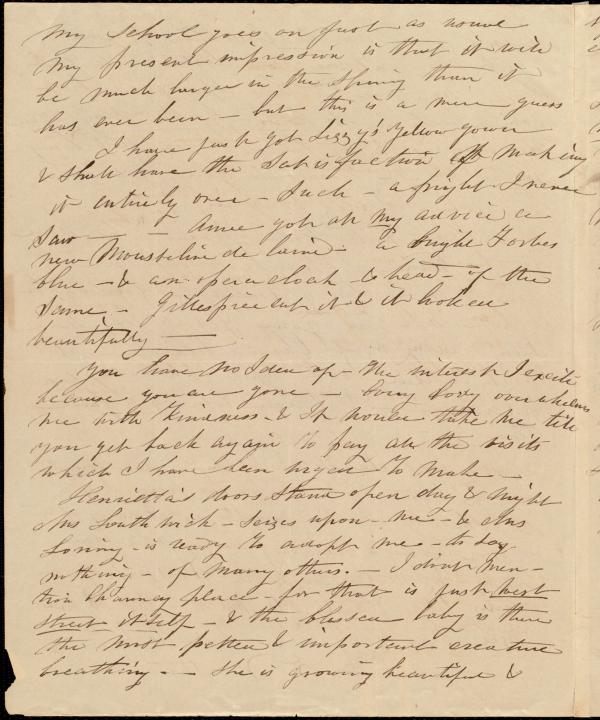 My school goes on just as usual
My present impression is that it will
be much larger in the Spring than it
has ever been - but this is a mere guess
I have just got Lizzy's Yellow gown
& shall have the Satisfaction of making
it entirely over - Such - a fright I never
Saw - Anne got at my advice a
new Mousseline de laine - a bright Forbes
blue - & an opera cloak & head - of the
Same - Gillespie cut it & it looked
beautifully -
You have no Idea of - the interest I excite
because you are gone - Every body overwhelms
me with Kindness - & It would take me till
you get back again to pay all the visits
which I have been urged to make -
Henrietta's doors stand open day & night
Mrs Southwick - Seizes upon - me - & Mrs
Loring - is ready to adopt me - to say
nothing - of many others. - I don't men-
tion Chauncy place - for that is just West
Street itself - & the blessed baby is there
the most petted & important creature
breathing. - She is growing beautiful &